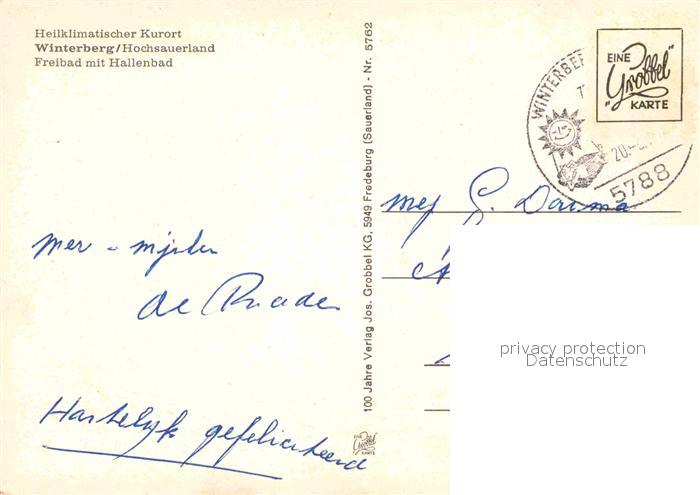 Heilklimatischer Kurort
Winterberg/Hochsauerland
Freibad mit Hallenbad
100 Jahre Verlag Jos. Grobbel KG, 5949 Fredeburg (Sauerland) - Nr. 5762
EINE
"Grobbel"
KARTE
WINTERBER
20.
5788
mej G. Douma
mer - mijder
de Ruader
Hartelijk gefeliciteerd
EINE
Grobbel
KARTE
privacy protection
Datenschutz